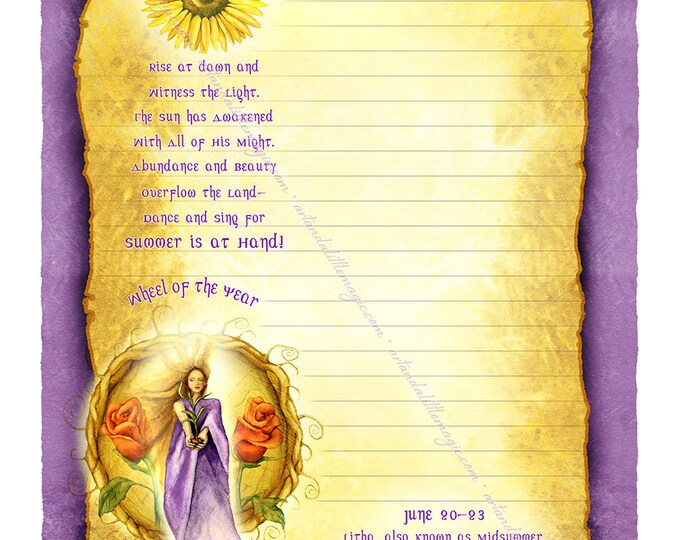 Rise at Dawn and
Witness the Light.
The Sun has Awakened
With All of His Might.
Abundance and Beauty
Overflow the Land–
Dance and Sing for
Summer is at Hand!
Wheel of the Year
artandalittlemagic.com · artandalittlemagic.com · artandalittlemagic.com
June 20–23
Litha, also known as Midsummer